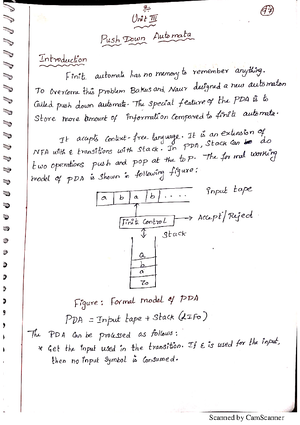 Unit III
77
Push Down Automata
Introduction
Finit automate has no memory to remember anything.
To overcome this problem Bakus and Naur designed a new automaton
Called push down automate. The special feature of the PDA is to
Store more amount of information compared to finit automate.
It acepts Context-free language. It is an extension of
NFA with ε transitions with Stack. In PDA, Stack can do
two operations push and pop at the top. The formal working
model of PDA is Shown in following figure:
a b a b ....
Input tape
Finit Control
Accept/Reject
Stack
a
b
a
Z0
Figure: Formal model of PDA
PDA = Input tape + Stack (LIFO)
The PDA can be processed as follows:
* Get the input used in the transition. If ε is used for the input,
then no input Symbol is Consumed.
Scanned by CamScanner